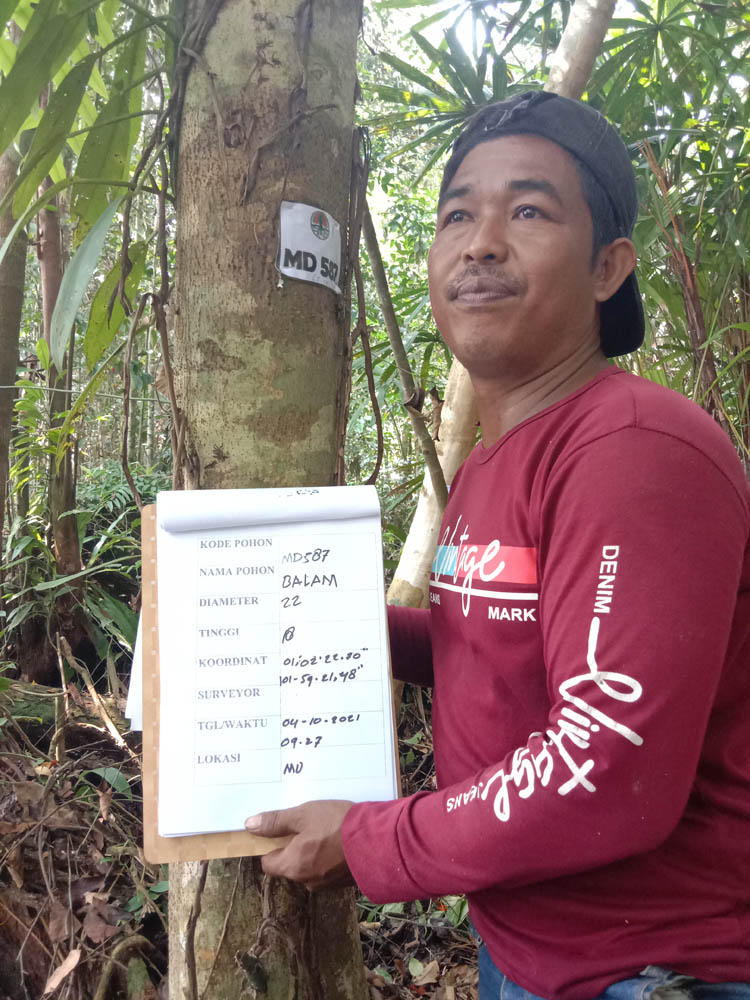 MD 587
KODE POHON MD587
NAMA POHON BALAM
DIAMETER 22
TINGGI
KOORDINAT 01,02'22.20"
101-59-21,48"
SURVEYOR
TGL/WAKTU 04-10-2021
09.27
LOKASI MD
Vintage
JEANS
MARK
DENIM
Vintage
JEANS